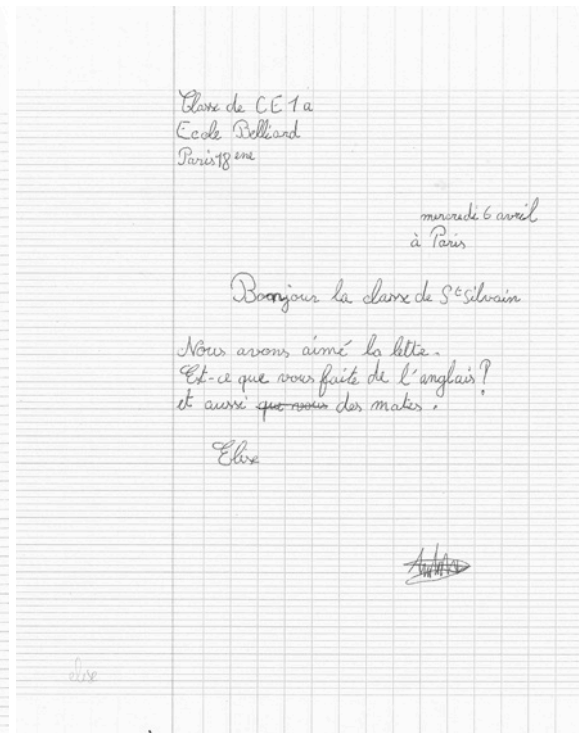 Classe de CE1a
Ecole Belliard
Paris 18 eme
mercredi 6 avril
à Paris
Bonjour la classe de St Silvain
Nous avons aimé la lette.
Est-ce que vous faite de l'anglais ?
et aussi que vous des mates.
Elise
elise